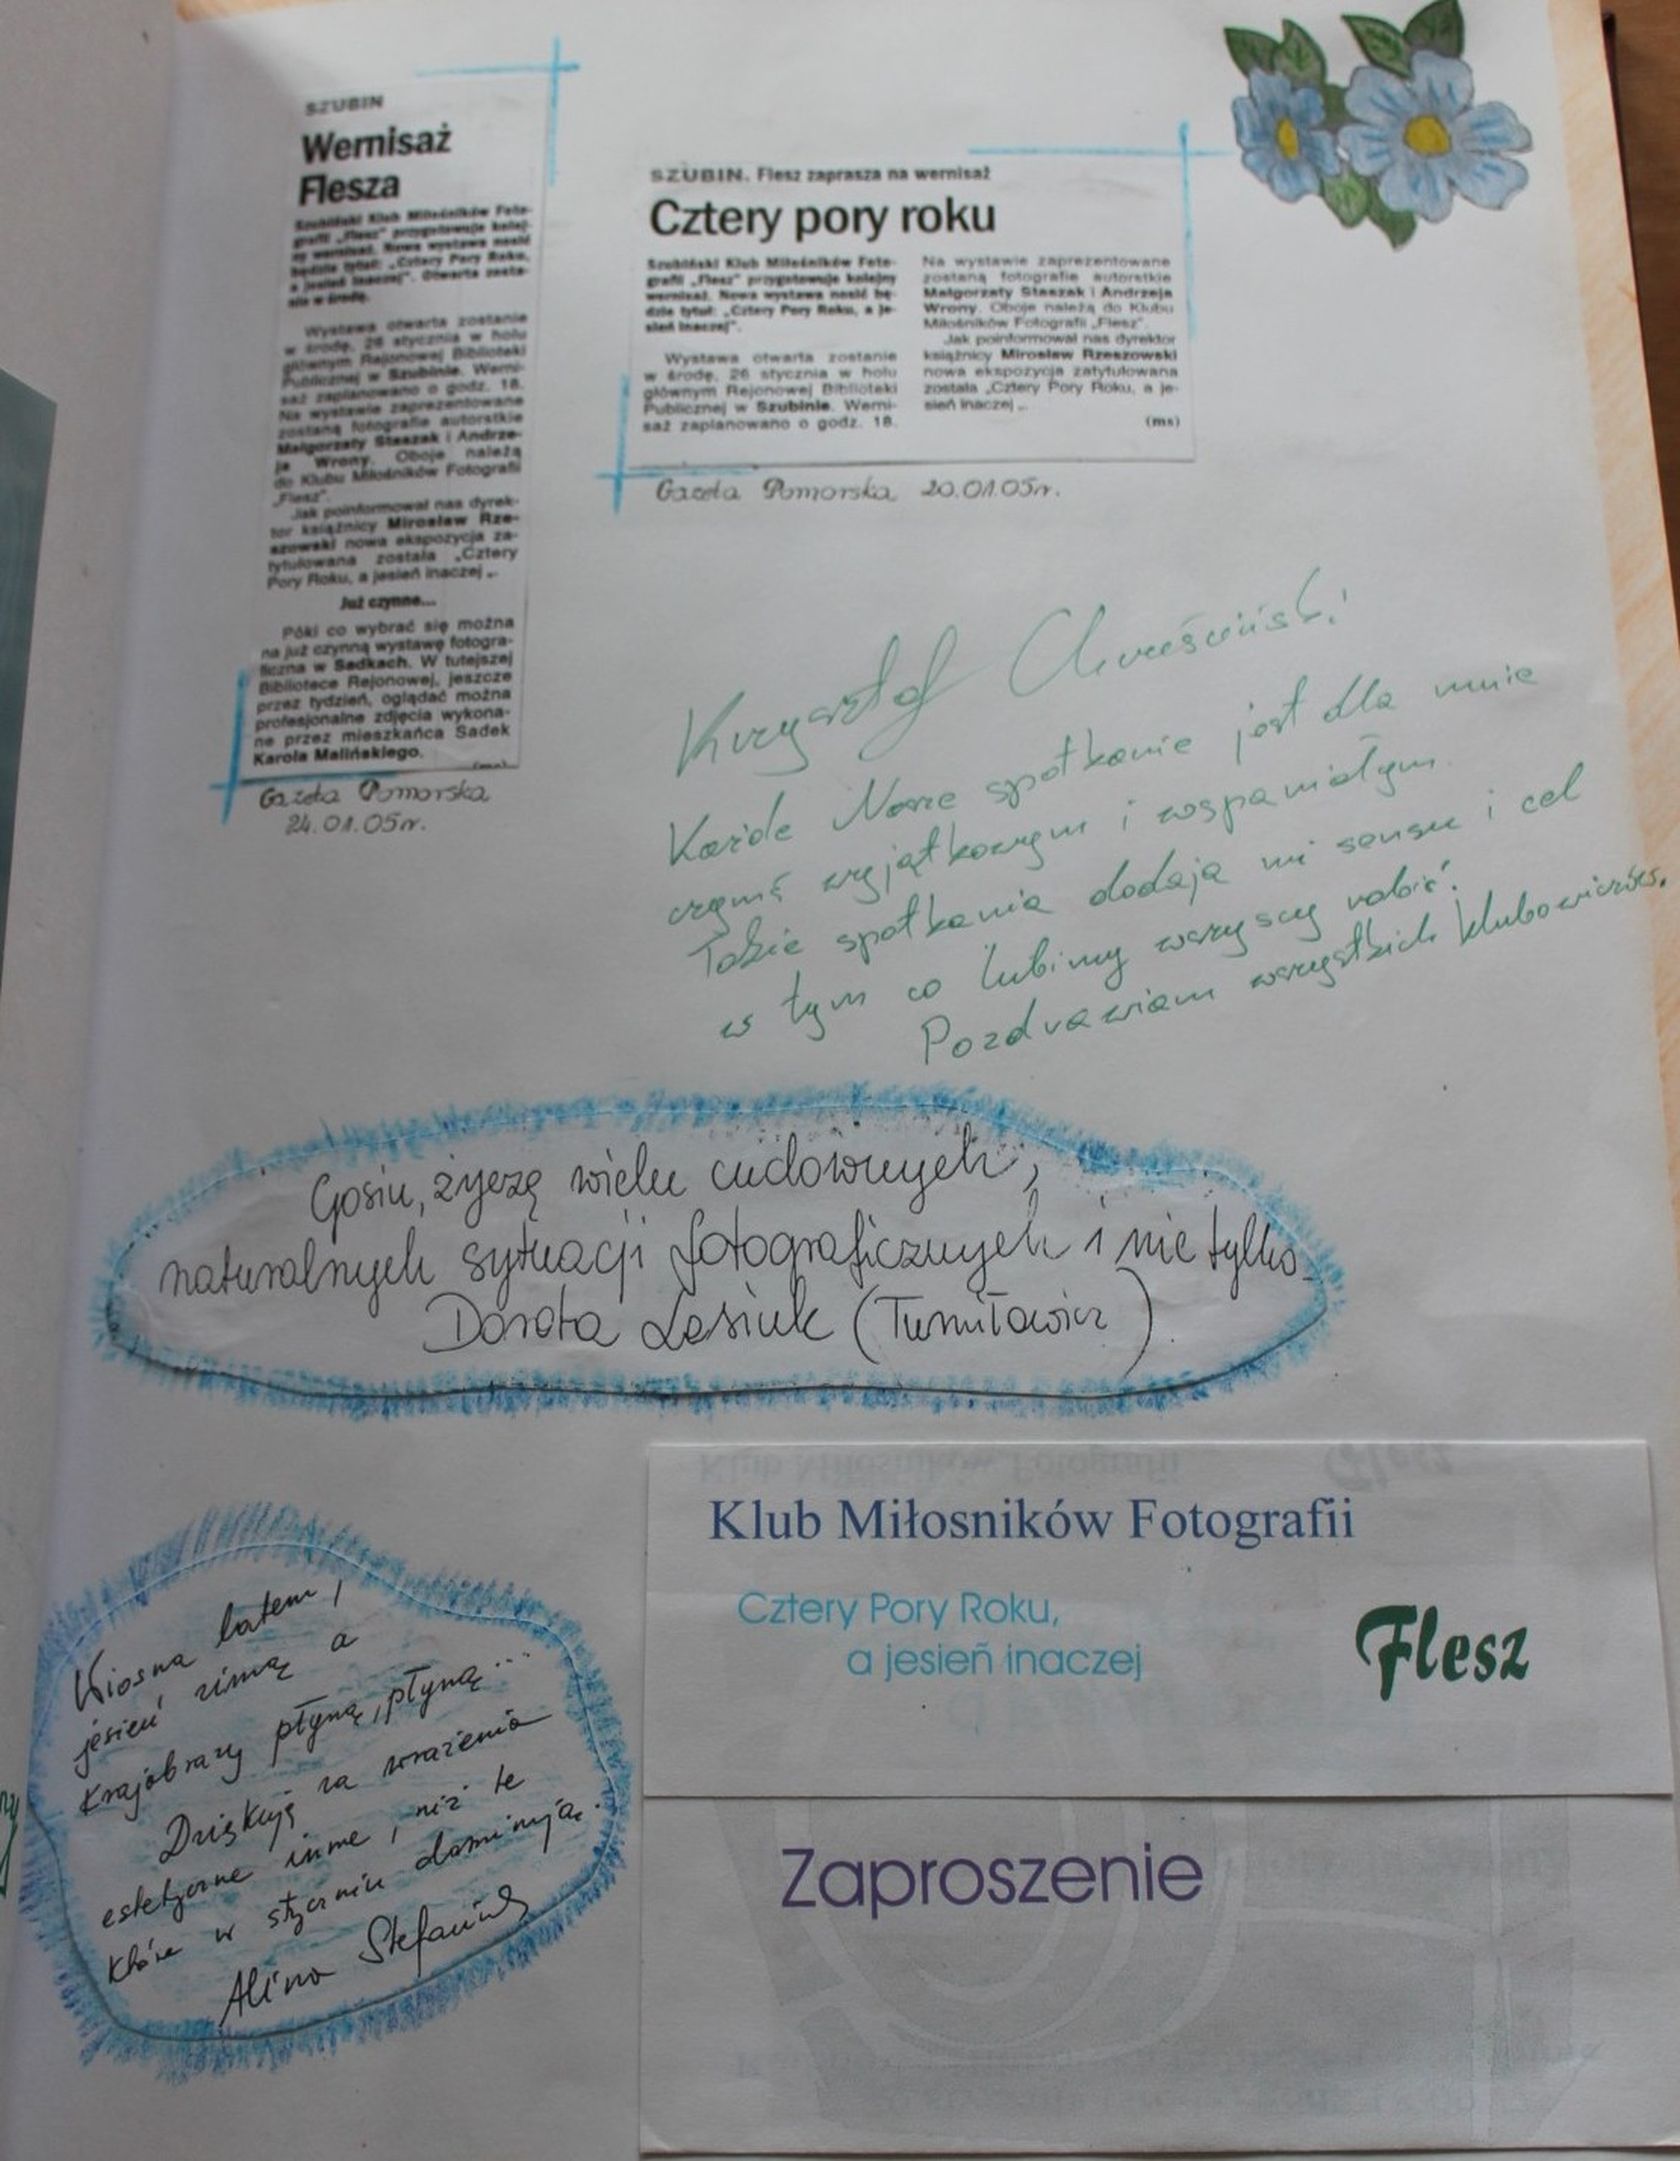 SZUBIN
Wernisaż
Flesza
Szubiński Klub Miłośników Foto-
grafii „Flesz" przygotowuje kolej-
ny wernisaż. Nowa wystawa nosić
będzie tytuł: „Cztery Pory Roku,
a jesień inaczej". Otwarta zosta-
nie w środę.
Wystawa otwarta zostanie
w środę, 26 stycznia w holu
głównym Rejonowej Biblioteki
Publicznej w Szubinie. Werni-
saż zaplanowano o godz. 18.
Na wystawie zaprezentowane
zostaną fotografie autorstkie
Małgorzaty Staszak i Andrze-
ja Wrony. Oboje należą
do Klubu Miłośników Fotografii
„Flesz".
Jak poinformował nas dyrek-
tor książnicy Mirosław Rze-
szowski nowa ekspozycja za-
tytułowana została „Cztery
Pory Roku, a jesień inaczej „.
Już czynne...
Póki co wybrać się można
na już czynną wystawę fotogra-
ficzna w Sadkach. W tutejszej
Bibliotece Rejonowej, jeszcze
przez tydzień, oglądać można
profesjonalne zdjęcia wykona-
ne przez mieszkańca Sadek
Karola Malińskiego.
(ms)
Gazeta Pomorska
24.01.05r.
SZUBIN. Flesz zaprasza na wernisaż
Cztery pory roku
Szubiński Klub Miłośników Foto-
grafii „Flesz" przygotowuje kolejny
wernisaż. Nowa wystawa nosić bę-
dzie tytuł: „Cztery Pory Roku, a je-
sień inaczej".
Wystawa otwarta zostanie
w środę, 26 stycznia w holu
głównym Rejonowej Biblioteki
Publicznej w Szubinie. Werni-
saż zaplanowano o godz. 18.
Na wystawie zaprezentowane
zostaną fotografie autorstkie
Małgorzaty Staszak i Andrzeja
Wrony. Oboje należą do Klubu
Miłośników Fotografii „Flesz".
Jak poinformował nas dyrektor
książnicy Mirosław Rzeszowski
nowa ekspozycja zatytułowana
została „Cztery Pory Roku, a je-
sień inaczej „.
(ms)
Gazeta Pomorska 20.01.05r.
Krzysztof
Każde Nowe spotkanie jest dla mnie
czymś wyjątkowym i wspaniałym.
Takie spotkania dodają mi sensu i cel
w tym co lubimy wszyscy robić.
Pozdrawiam wszystkich klubowiczów.
Gosiu, życzę wielu cudownych,
naturalnych sytuacji fotograficznych i nie tylko
Dorota Lesiuk (Tumiłowicz)
Wiosna latem,
jesień zimą a
Krajobrazy płyną, płyną...
Dziękuję za wrażenia
estetyczne inne, niż te
które w styczniu dominują.
Alina Stefaniak
Klub Miłosników Fotografii
Cztery Pory Roku,
a jesień inaczej
Flesz
Zaproszenie